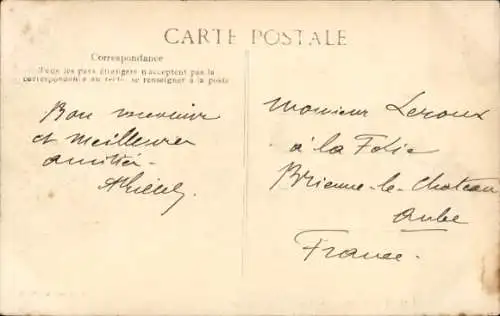 CARTE POSTALE
Correspondance
Tous les pays étrangers n'acceptent pas la
correspondance au recto, se renseigner à la poste
Bon souvenir
et meilleures
amitiés
Monsieur Leroux
à la Folie
Brienne-le-Chateau
Aube
France.